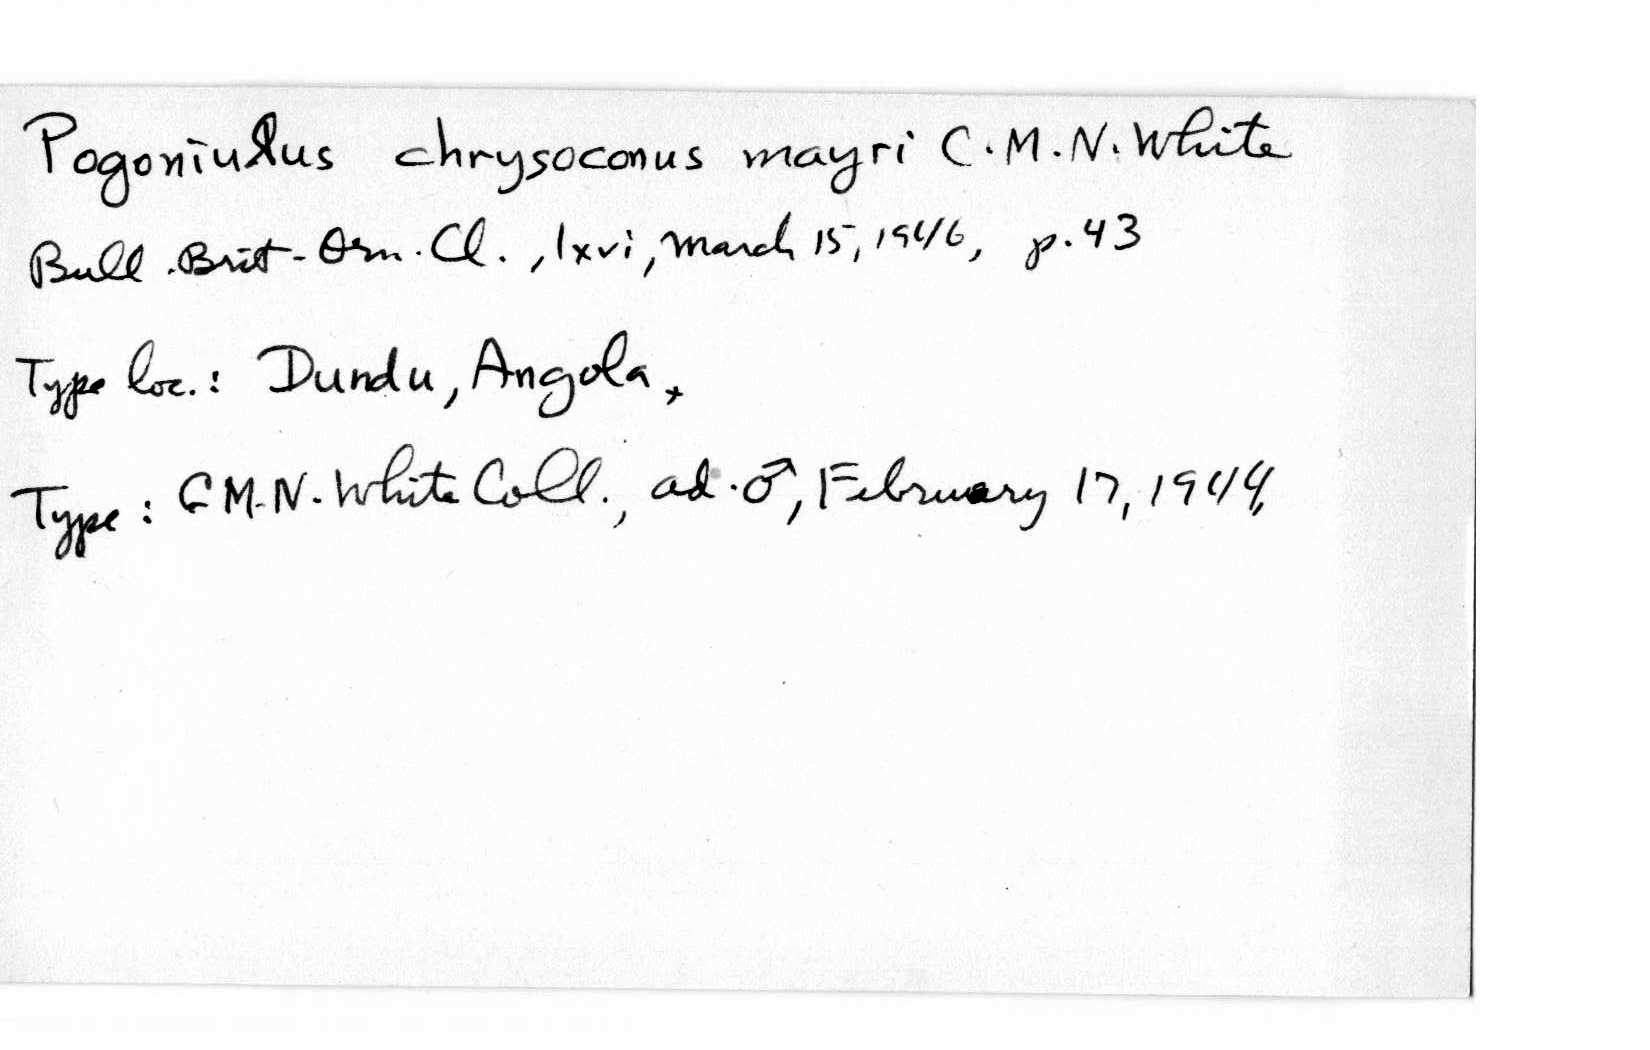 Pogoniulus chrysoconus mayri C.M.N. White
Bull. Brit. Orn. Cl., lxvi, March 15, 1946, p. 43
Type loc.: Dundu, Angola.
Type: C.M.N. White Coll., ad. ♂, February 17, 1944,